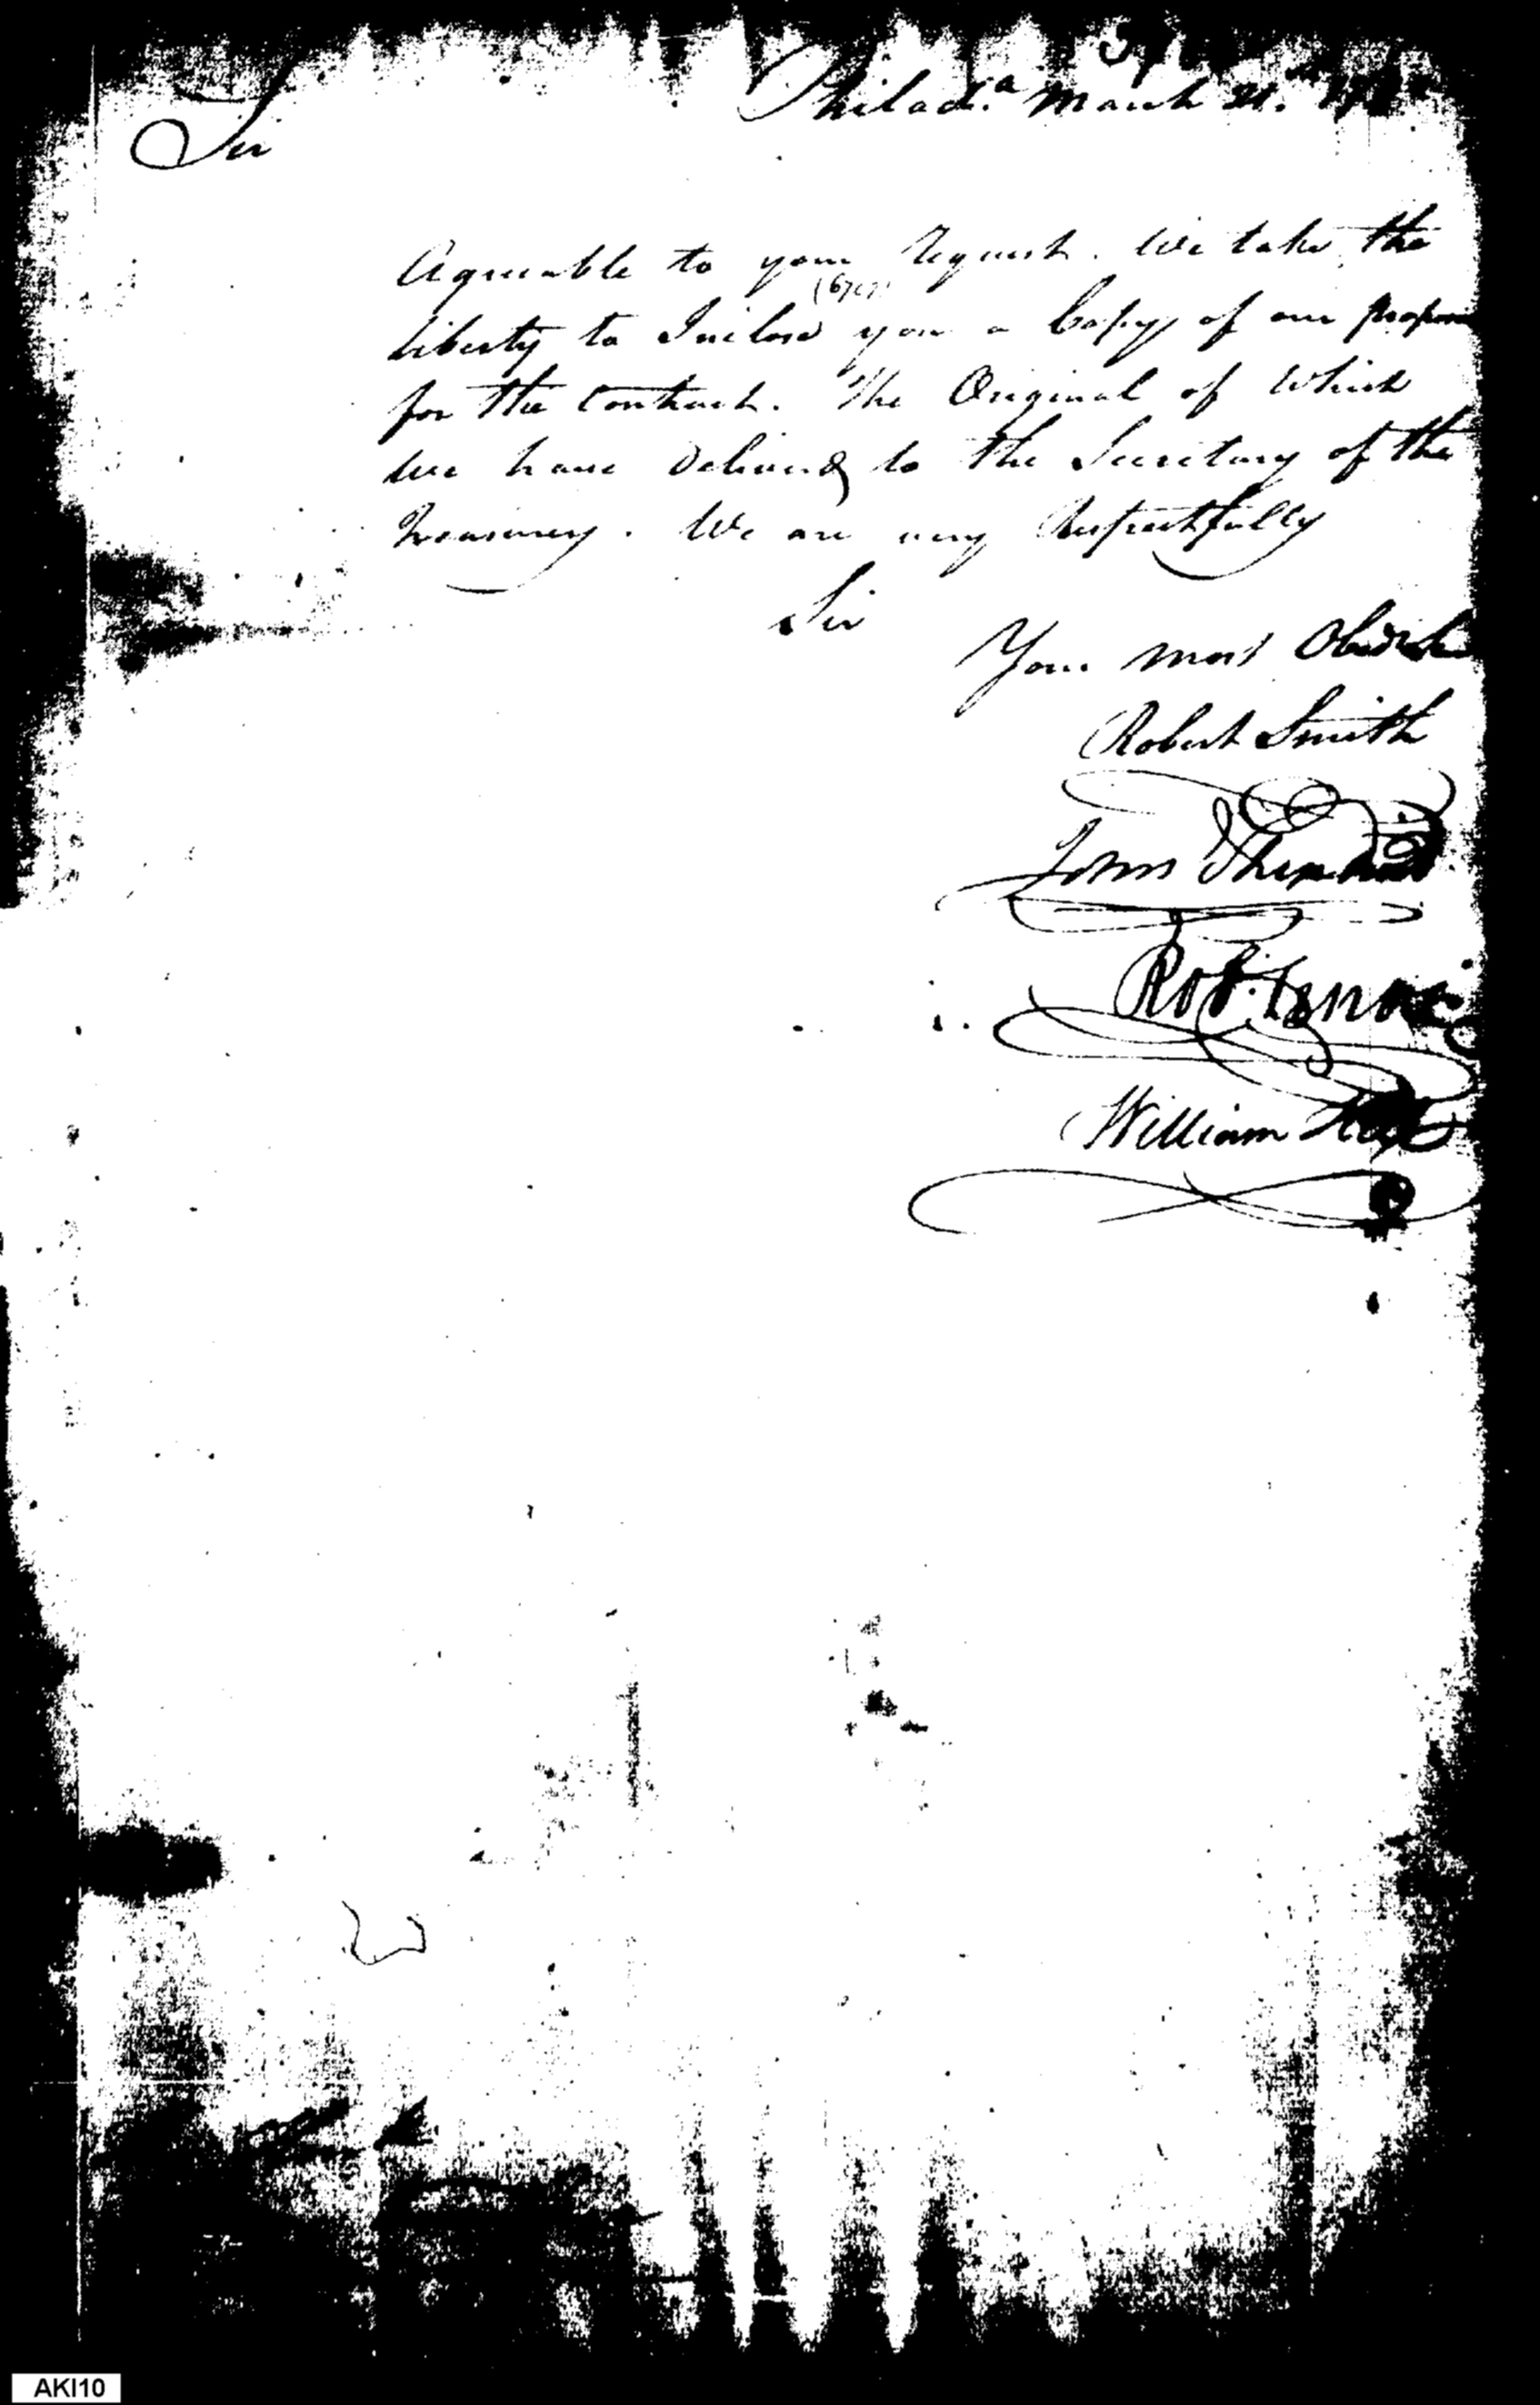 Philad.a March 21. 17
Sir
Agreeable to your request. We take the
(67c7)
Liberty to Inclose you a Copy of our
for the Contract. The Original of Which
We have Deliverd to the Secretary of the
Treasurery. We are very Respectfully
Sir
Your most
Robert Smith
John
Robt.
William
AKI10